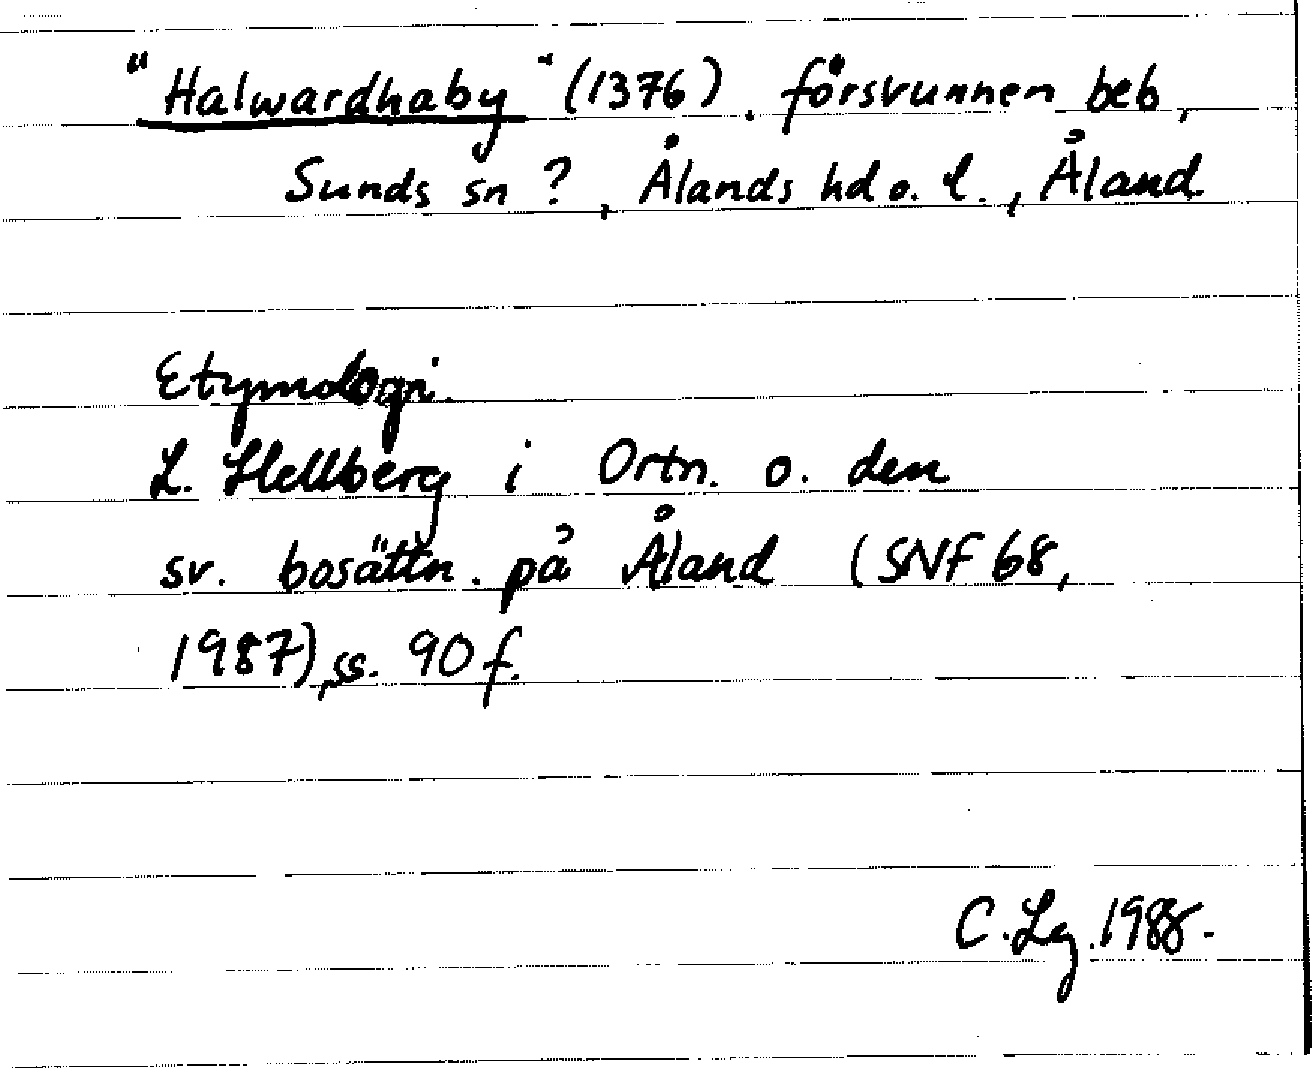 "Halwardhaby" (1376). försvunnen beb,
Sunds sn ?, Ålands hd o. l., Åland
Etymologi.
L. Hellberg i Ortn. o. den
sv. bosättn. på Åland (SNF 68,
1987), ss. 90 f.
C. Lg. 1988.